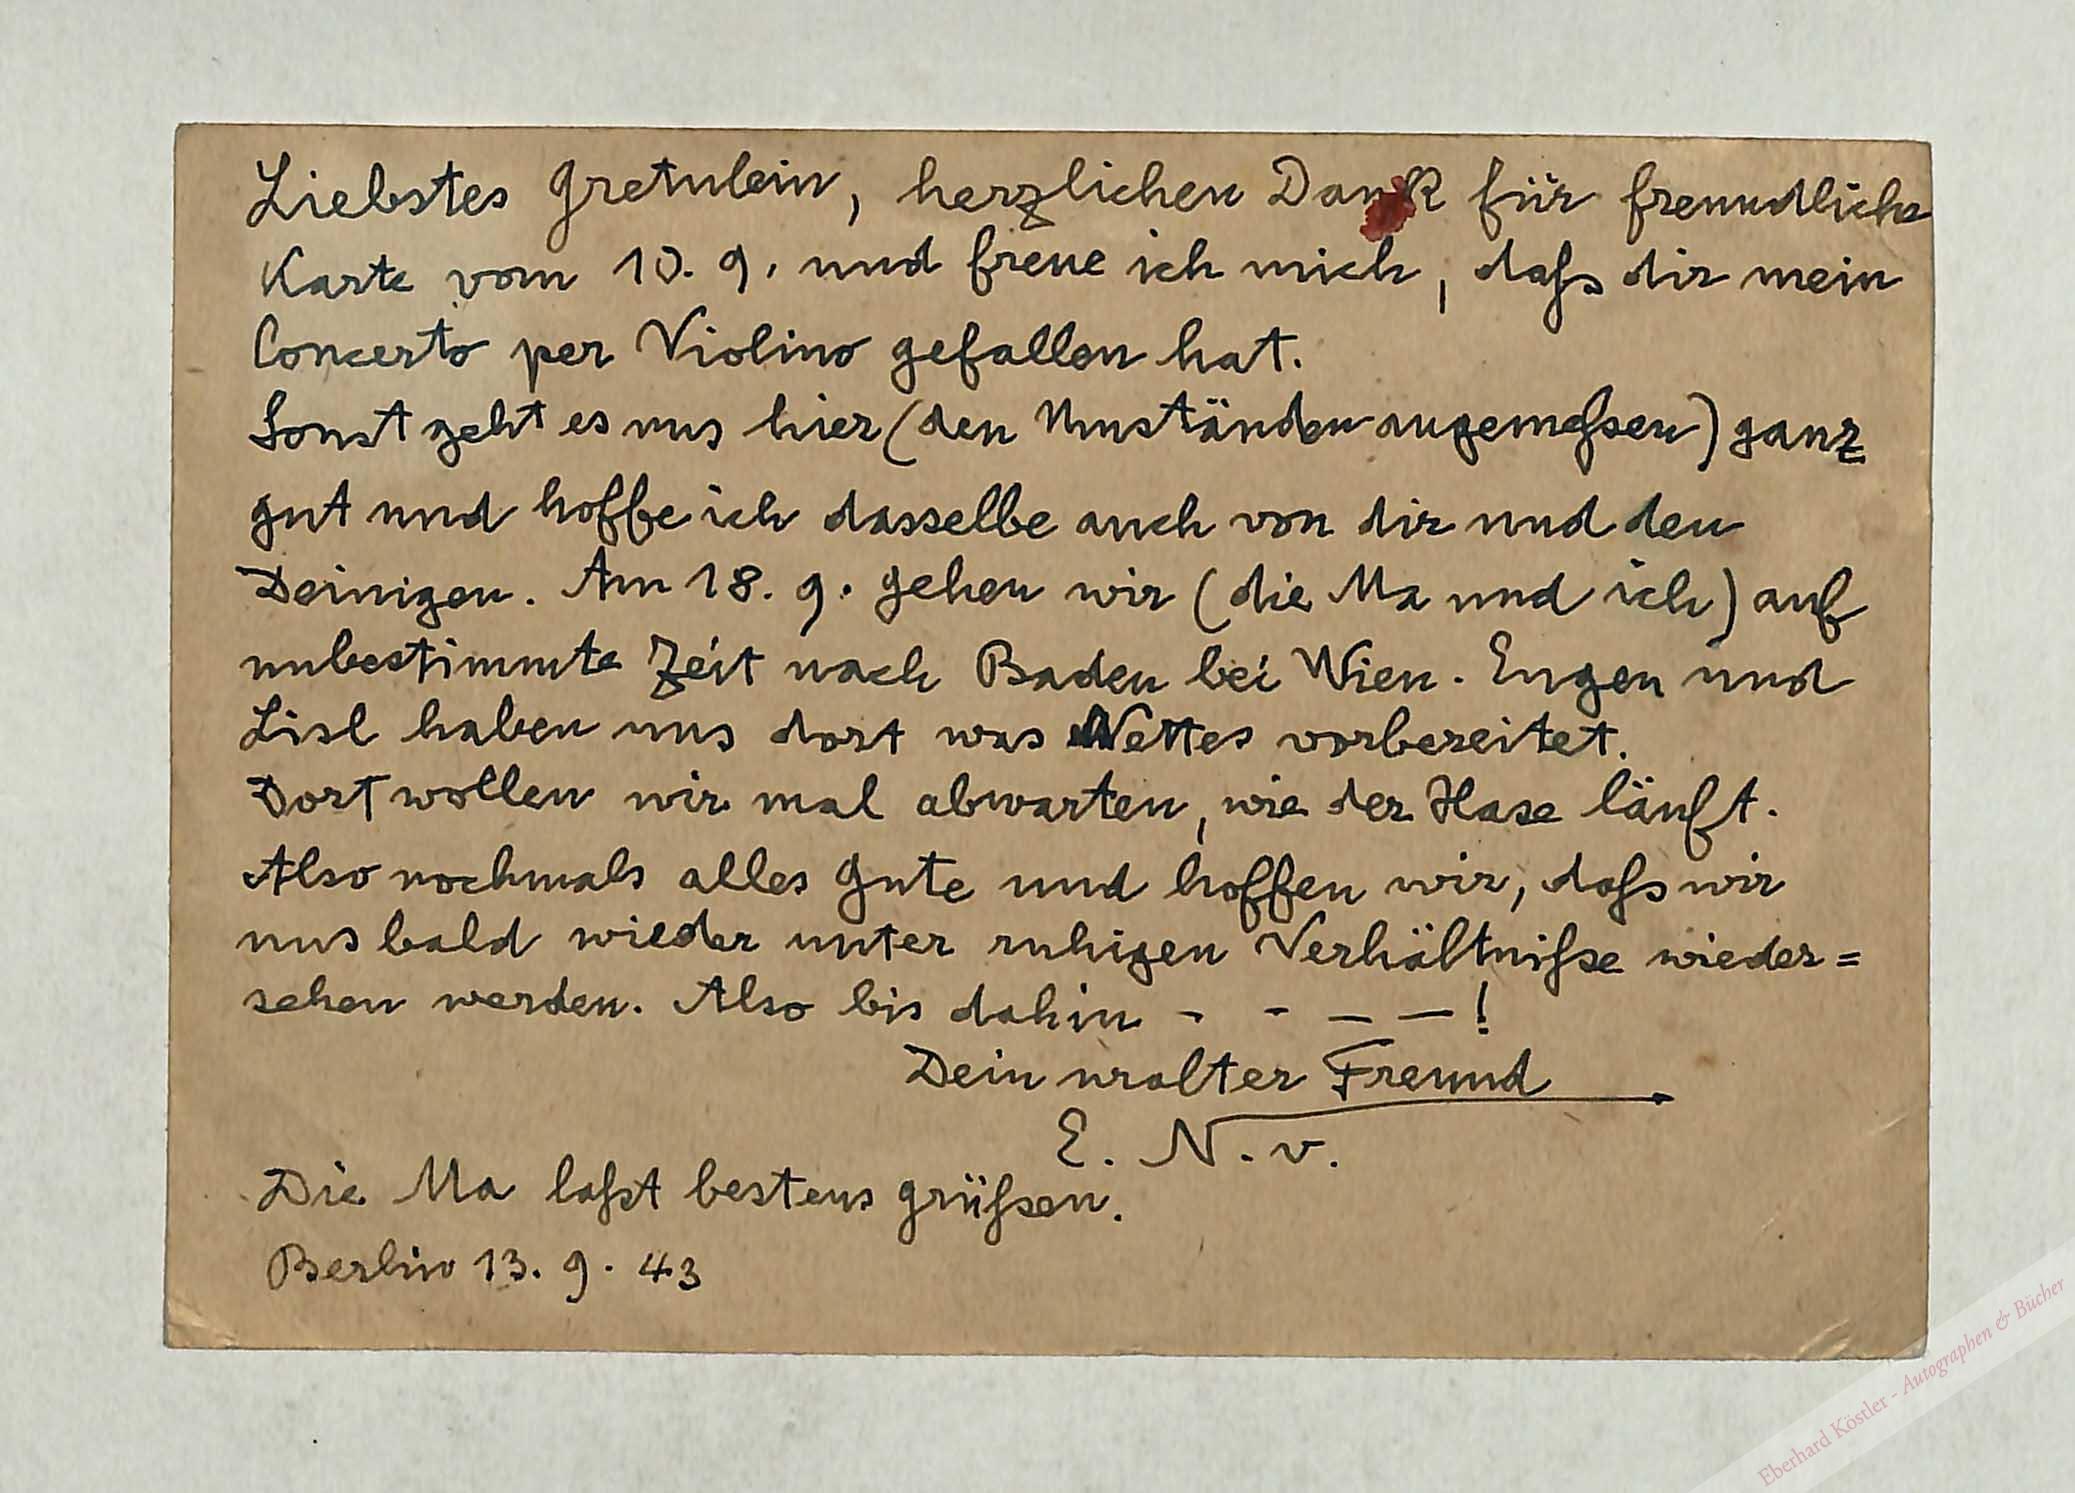 Liebstes Gretulein, herzlichen Dank für freundliche
Karte vom 10. 9. und freue ich mich, dass dir mein
Concerto per Violino gefallen hat.
Sonst geht es uns hier (den Umständen angemessen) ganz
gut und hoffe ich dasselbe auch von dir und den
Deinigen. Am 18. 9. gehen wir (die Ma und ich) auf
unbestimmte Zeit nach Baden bei Wien. Eugen und
Lisl haben uns dort was Nettes vorbereitet.
Dort wollen wir mal abwarten, wie der Hase läuft.
Also nochmals alles Gute und hoffen wir, dass wir
uns bald wieder unter ruhigen Verhältnisse wieder=
sehen werden. Also bis dahin - - — — !
Dein uralter Freund
E. N. v.
Die Ma lasst bestens grüssen.
Berlin 13. 9. 43
Eberhard Köstler - Autographen & Bücher